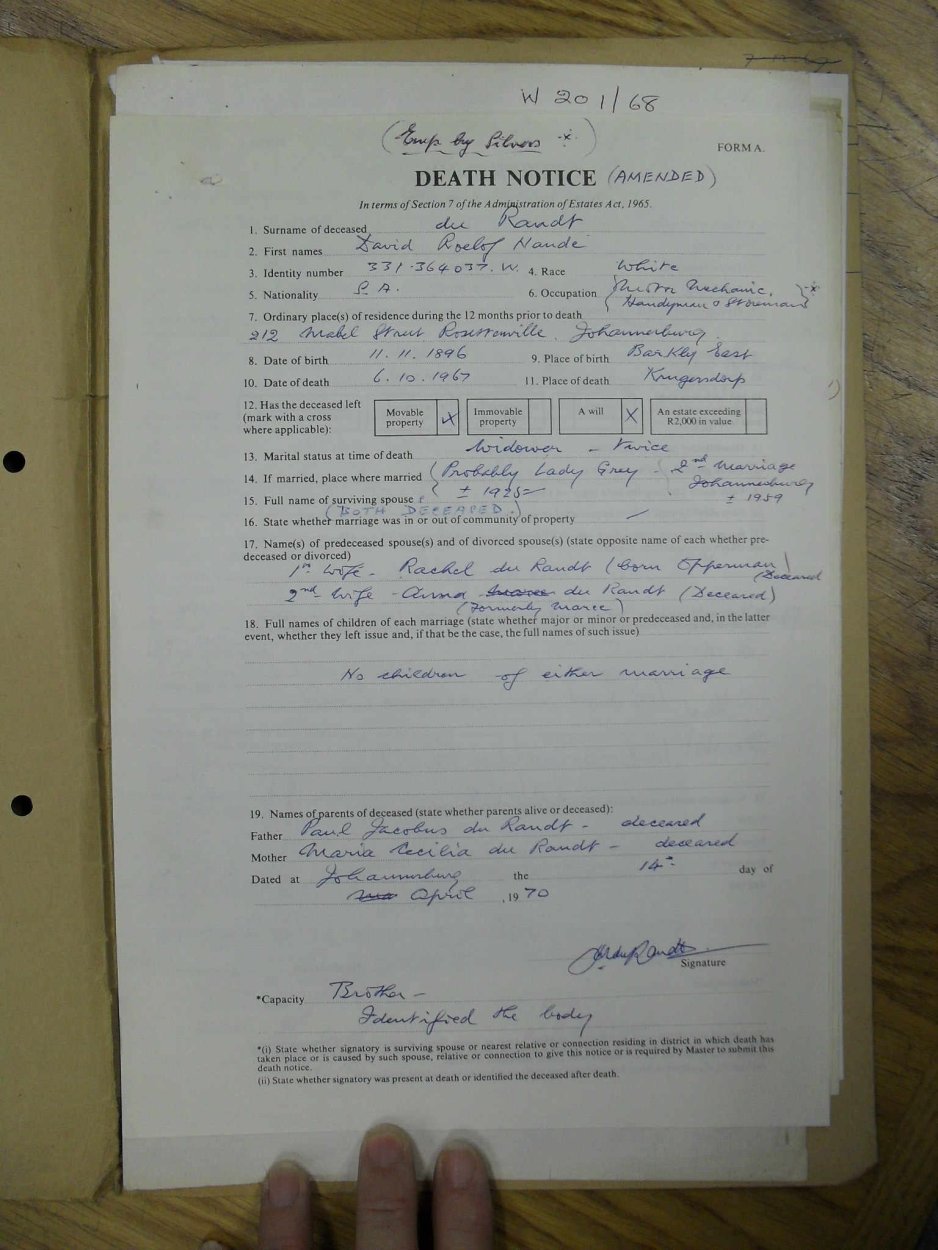 W 201/68
(Emp by Silvers *)
FORM A.
DEATH NOTICE (AMENDED)
In terms of Section 7 of the Administration of Estates Act, 1965.
1. Surname of deceased du Randt
2. First names David Roelof Naude
3. Identity number 331-364037. W. 4. Race White
5. Nationality S.A. 6. Occupation (Motor Mechanic, Handyman & Storeman) *
7. Ordinary place(s) of residence during the 12 months prior to death
212 Mabel Street Rosettenville, Johannesburg
8. Date of birth 11.11.1896 9. Place of birth Barkly East
10. Date of death 6.10.1967 11. Place of death Krugersdorp
12. Has the deceased left (mark with a cross where applicable): Movable property X Immovable property A will X An estate exceeding R2,000 in value
13. Marital status at time of death Widower - Twice
14. If married, place where married (Probably Lady Grey ± 1925 2nd Marriage Johannesburg ± 1959
15. Full name of surviving spouse
(BOTH DECEASED)
16. State whether marriage was in or out of community of property —
17. Name(s) of predeceased spouse(s) and of divorced spouse(s) (state opposite name of each whether pre-
deceased or divorced)
1st Wife - Rachel du Randt (born Opperman) (Deceased
2nd Wife - Anna du Randt (Deceased)
(Formerly Maree)
18. Full names of children of each marriage (state whether major or minor or predeceased and, in the latter
event, whether they left issue and, if that be the case, the full names of such issue)
No children of either marriage
19. Names of parents of deceased (state whether parents alive or deceased):
Father Paul Jacobus du Randt - deceased
Mother Maria Cecilia du Randt - deceased
Dated at Johannesburg the 14th day of
April , 1970
Signature
*Capacity Brother -
Identified the body
*(i) State whether signatory is surviving spouse or nearest relative or connection residing in district in which death has
taken place or is caused by such spouse, relative or connection to give this notice or is required by Master to submit this
death notice.
(ii) State whether signatory was present at death or identified the deceased after death.